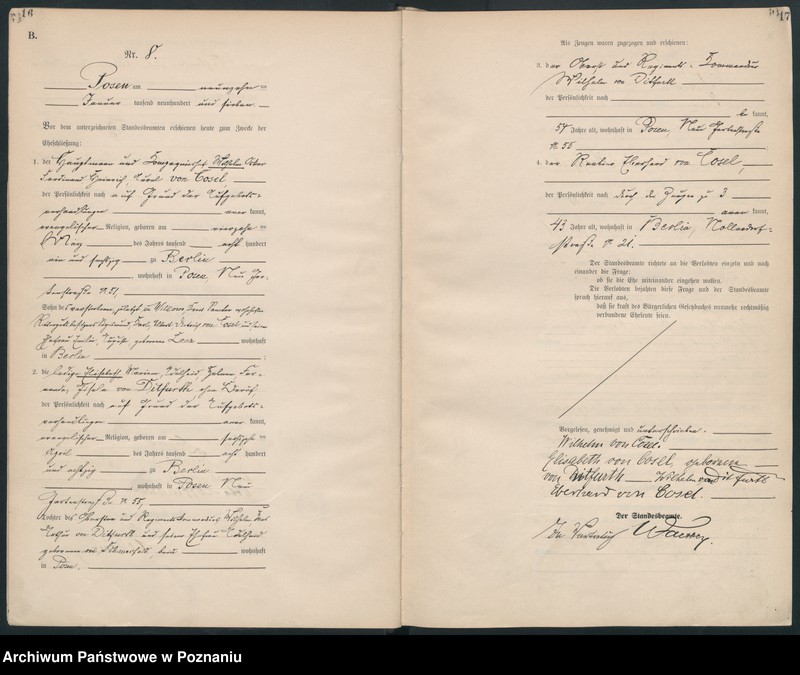 16
B.
Nr. 8.
Posen am neunzehnten
Januar tausend neunhundert und sieben.
Vor dem unterzeichneten Standesbeamten erschienen heute zum Zwecke der
Eheschließung:
1. der Hauptmann und Kompagniechef Wilhelm
Ferdinand Heinrich von Cosel
der Persönlichkeit nach auf Grund der Aufgebots-
verhandlungen anerkannt,
evangelischer Religion, geboren am
März des Jahres tausend acht hundert
ein und siebzig zu Berlin
, wohnhaft in Posen, Neu Gar-
tenstraße
Sohn des verstorbenen
von Cosel und seiner
Ehefrau geborenen wohnhaft
in Berlin ;
2. die ledige Elisabeth
von Ditfurth ohne Beruf,
der Persönlichkeit nach auf Grund der Aufgebots-
verhandlungen anerkannt,
evangelischer Religion, geboren am sechzehnten
April des Jahres tausend acht hundert
und achtzig zu Berlin
, wohnhaft in Posen Neu
Gartenstraße 55
Tochter des Obersten und Regimentskommandeurs Wilhelm
von Ditfurth und seiner Ehefrau
geborenen von beide wohnhaft
in Posen.
17
Als Zeugen waren zugezogen und erschienen:
3. der Oberst und Regiments-Kommandeur
Wilhelm von Ditfurth
der Persönlichkeit nach
bekannt,
57 Jahre alt, wohnhaft in Posen, Neu Gartenstraße
55 ;
4. der Rentner Eberhard von Cosel,
der Persönlichkeit nach durch den Zeugen zu 3
anerkannt,
43 Jahre alt, wohnhaft in Berlin, Nollendorf-
straße 21.
Der Standesbeamte richtete an die Verlobten einzeln und nach
einander die Frage:
ob sie die Ehe miteinander eingehen wollen.
Die Verlobten bejahten diese Frage und der Standesbeamte
sprach hierauf aus,
daß sie kraft des Bürgerlichen Gesetzbuches nunmehr rechtmäßig
verbundene Eheleute seien.
Vorgelesen, genehmigt und unterschrieben.
Wilhelm von Cosel.
Elisabeth von Cosel, geborene
von Ditfurth Wilhelm von Ditfurth
Eberhard von Cosel.
Der Standesbeamte.
In Vertretung
Archiwum Państwowe w Poznaniu